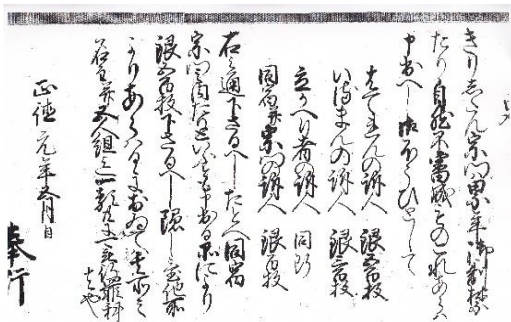 きりしたん宗門累年御制禁
たり自然不審成ものこれあらハ
申出へし御ほうひとして
はてれんの訴人　銀五百枚
いるまんの訴人　銀三百枚
立かへり者の訴人　同断
同宿并宗門の訴人　銀百枚
右之通下さるへしたとへ同宿
宗門之内たりといふとも申出る品により
銀五百枚下さるへし隠し置他所
よりあらハるゝにおゐてハ其所之
名主并五人組迄一類共ニ可行罪科
者也
正徳元年五月日
奉行